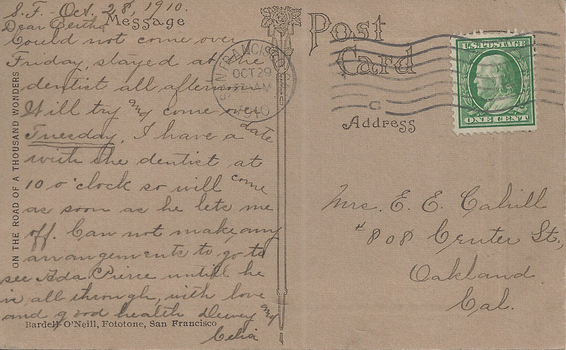 S.F. Oct. 28, 1910.
Message
Dear Bertha
Could not come over
Friday, stayed at the
dentist all afternoon
Will try and come over
Tuesday, I have a date
with the dentist at
10 o'clock so will come
as soon as he lets me
off. Can not make any
arrangements to go to
see Ada Peirce untill he
is all through, with love
and good health Dewey and
Celia
ON THE ROAD OF A THOUSAND WONDERS
Bardell O'Neill, Fototone, San Francisco
Post
Card
SAN FRANCISCO
OCT 29
AM
1910
U.S. POSTAGE
ONE CENT
Address
Mrs. E. E. Cahill
#808 Center St.,
Oakland
Cal.